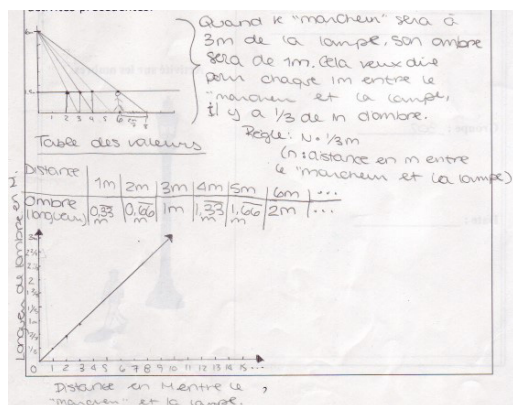 Quand le "marcheur" sera à
3m de la lampe, son ombre
sera de 1m. Cela veux dire
pour chaque 1m entre le
"marcheur et la lampe,
il y a 1/3 de m d'ombre.
Règle: N · 1/3m
(n: distance en m entre
le "marcheur et la lampe)
1 2 3 4 5 6 7 8
Table des valeurs
Distance 1m 2m 3m 4m 5m 6m ...
ombre (longueur) 0,33 m 0,66 m 1m 1,33 m 1,66 m 2m ...
Longueur de l'ombre en
0 1 2 3 4 5 6 7 8 9 10 11 12 13 14 15 ...
Distance en M entre le
"marcheur" et la lampe.